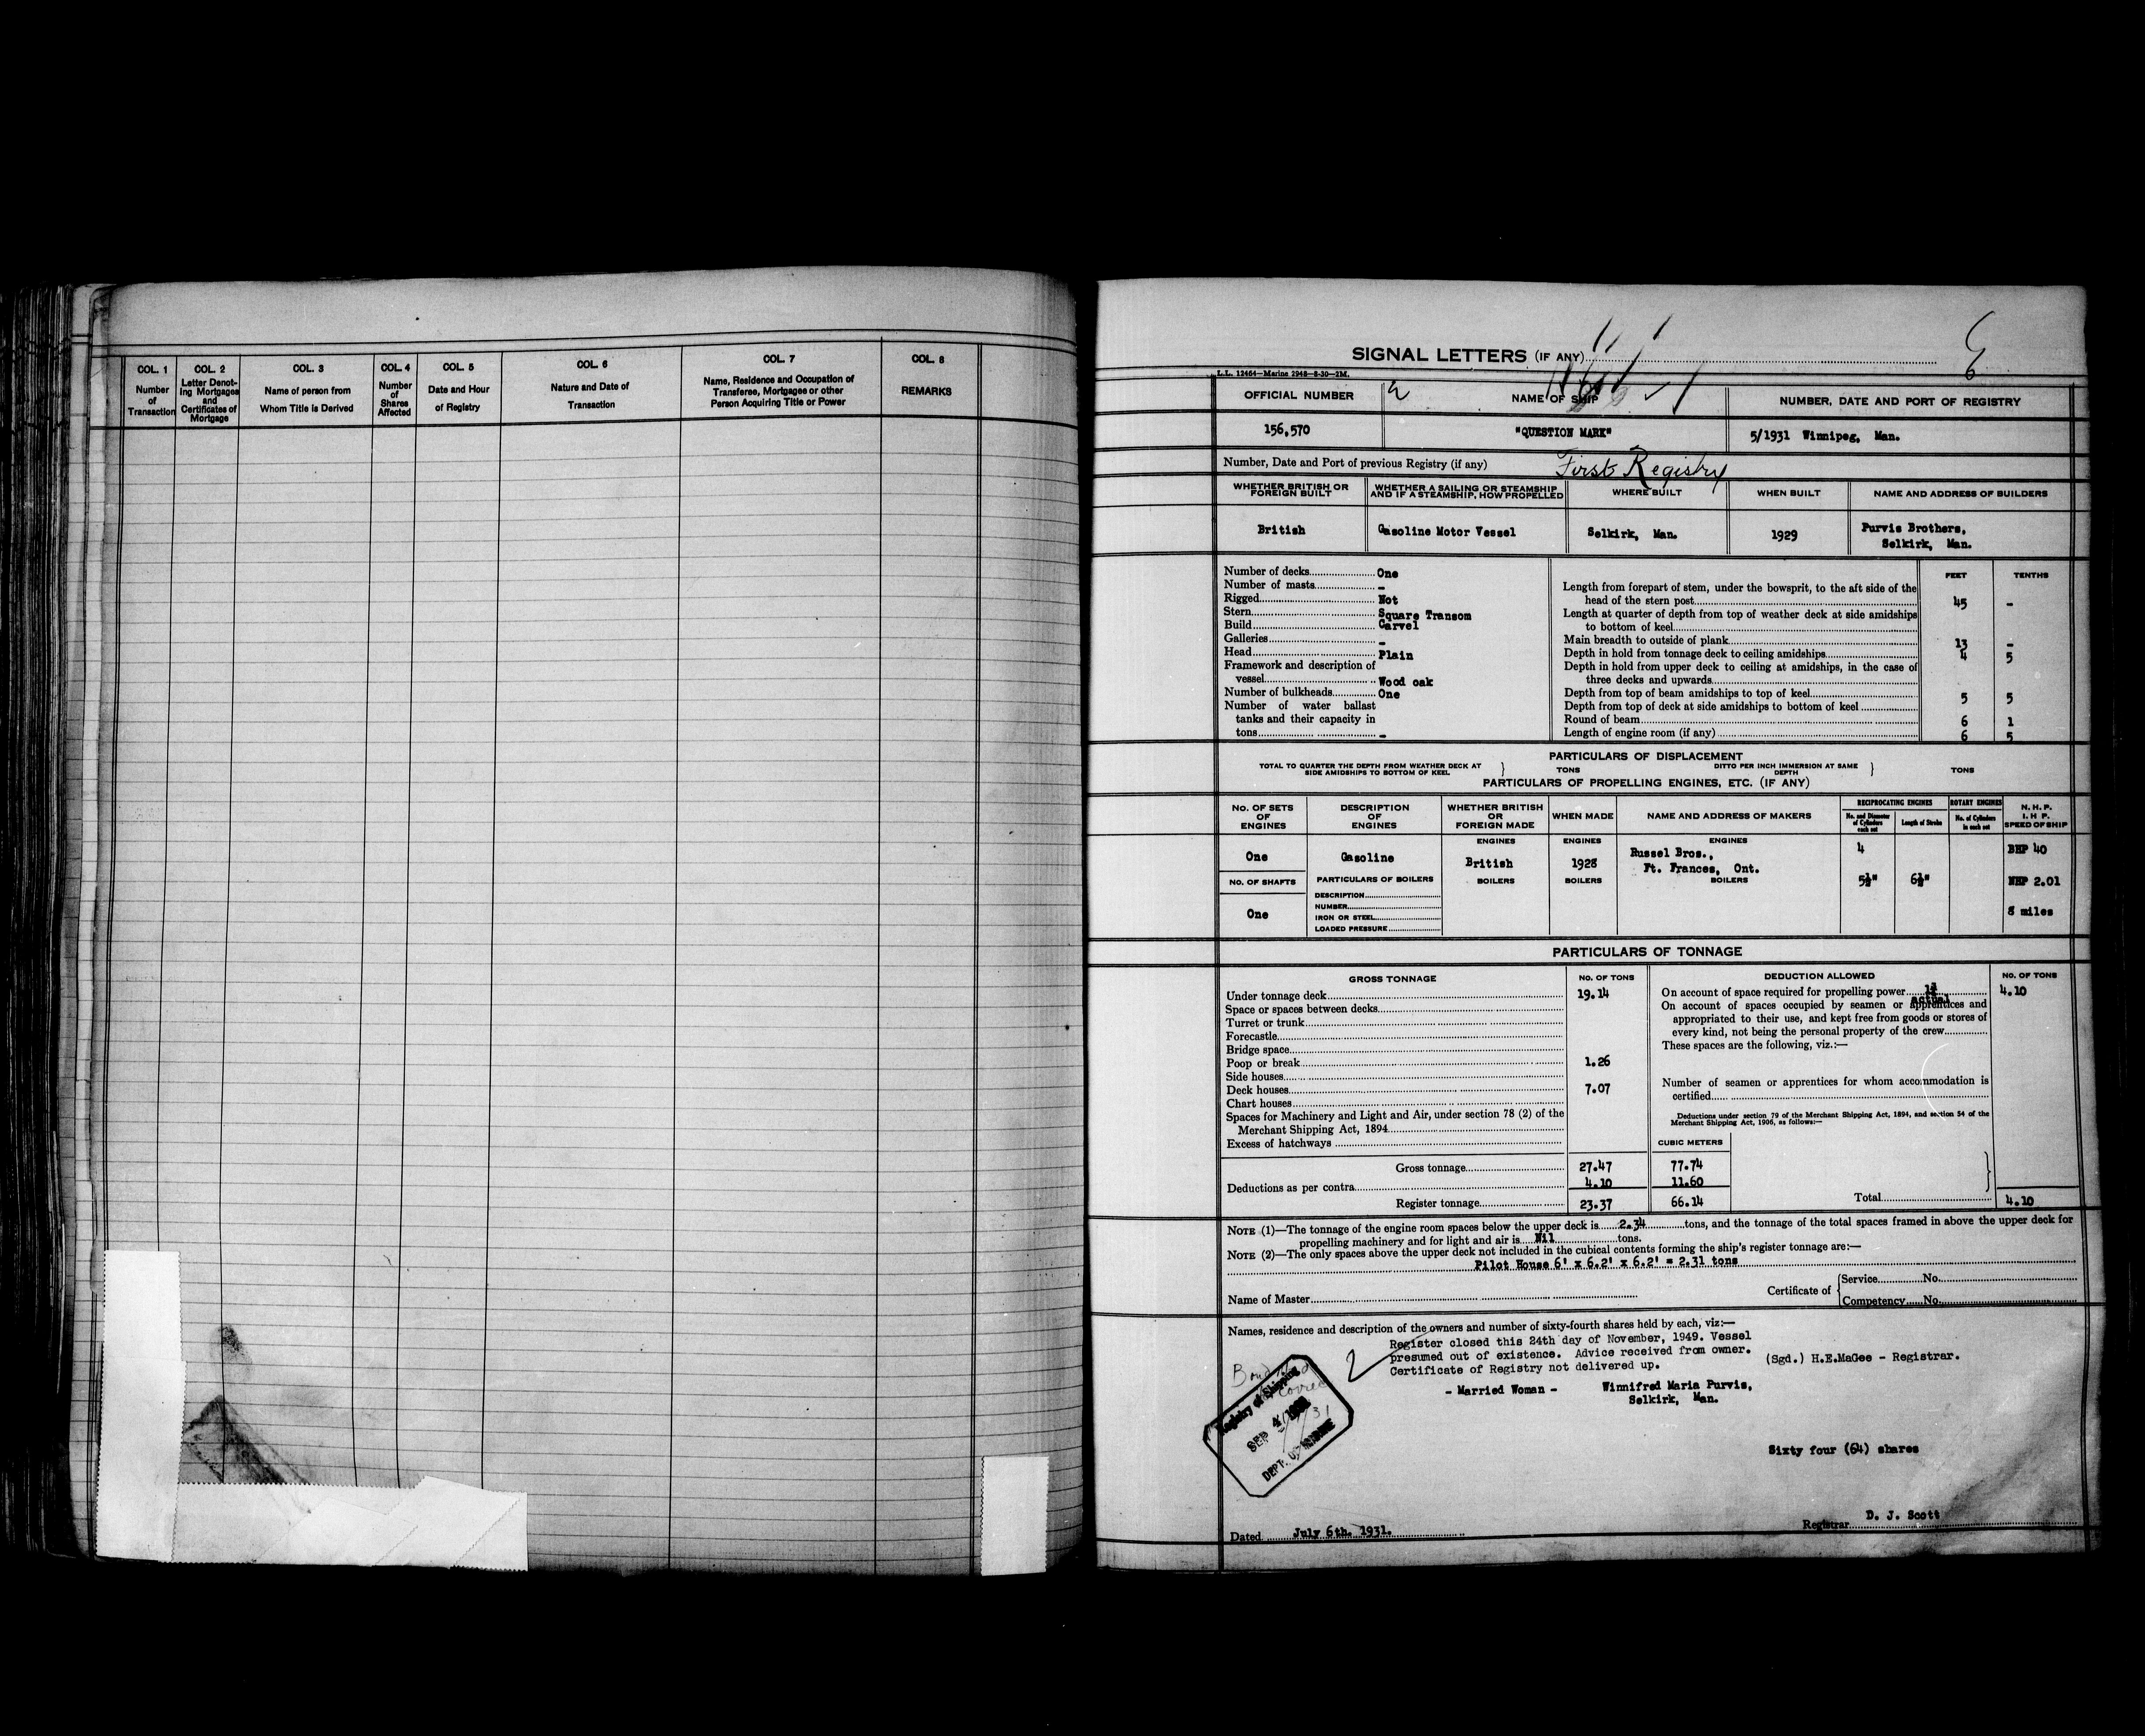 COL. 1
Number
of
Transaction
COL. 2
Letter Denot-
ing Mortgages
and
Certificates of
Mortgage
COL. 3
Name of person from
Whom Title is Derived
COL. 4
Number
of
Shares
Affected
COL. 5
Date and Hour
of Registry
COL. 6
Nature and Date of
Transaction
COL. 7
Name, Residence and Occupation of
Transferee, Mortgagee or other
Person Acquiring Title or Power
COL. 8
REMARKS
SIGNAL LETTERS (IF ANY)
L.L. 12464—Marine 2948—8-30—2M.
OFFICIAL NUMBER
NAME OF SHIP
NUMBER, DATE AND PORT OF REGISTRY
156,570
"QUESTION MARK"
5/1931 Winnipeg, Man.
Number, Date and Port of previous Registry (if any) First Registry
WHETHER BRITISH OR
FOREIGN BUILT
WHETHER A SAILING OR STEAMSHIP
AND IF A STEAMSHIP, HOW PROPELLED
WHERE BUILT
WHEN BUILT
NAME AND ADDRESS OF BUILDERS
British
Gasoline Motor Vessel
Selkirk, Man.
1929
Purvis Brothers,
Selkirk, Man.
Number of decks One
Number of masts -
Rigged Not
Stern Square Transom
Build Carvel
Galleries -
Head Plain
Framework and description of
vessel Wood oak
Number of bulkheads One
Number of water ballast
tanks and their capacity in
tons -
FEET TENTHS
Length from forepart of stem, under the bowsprit, to the aft side of the
head of the stern post 45 -
Length at quarter of depth from top of weather deck at side amidships
to bottom of keel
Main breadth to outside of plank 13 -
Depth in hold from tonnage deck to ceiling amidships 4 5
Depth in hold from upper deck to ceiling at amidships, in the case of
three decks and upwards
Depth from top of beam amidships to top of keel 5 5
Depth from top of deck at side amidships to bottom of keel
Round of beam 6 1
Length of engine room (if any) 6 5
PARTICULARS OF DISPLACEMENT
TOTAL TO QUARTER THE DEPTH FROM WEATHER DECK AT
SIDE AMIDSHIPS TO BOTTOM OF KEEL
TONS
DITTO PER INCH IMMERSION AT SAME
DEPTH
TONS
PARTICULARS OF PROPELLING ENGINES, ETC. (IF ANY)
No. OF SETS
OF
ENGINES
DESCRIPTION
OF
ENGINES
WHETHER BRITISH
OR
FOREIGN MADE
WHEN MADE
NAME AND ADDRESS OF MAKERS
RECIPROCATING ENGINES
No. and Diameter
of Cylinders
each set
Length of Stroke
ROTARY ENGINES
No. of Cylinders
in each set
N. H. P.
I. H. P.
SPEED OF SHIP
ENGINES
ENGINES
ENGINES
One
Gasoline
British
1928
Russel Bros.,
Ft. Frances, Ont.
4
BHP 40
No. OF SHAFTS
PARTICULARS OF BOILERS
BOILERS
BOILERS
BOILERS
5½"
6½"
NHP 2.01
One
DESCRIPTION
NUMBER
IRON OR STEEL
LOADED PRESSURE
8 miles
PARTICULARS OF TONNAGE
GROSS TONNAGE
No. OF TONS
Under tonnage deck 19.14
Space or spaces between decks
Turret or trunk
Forecastle
Bridge space
Poop or break 1.26
Side houses
Deck houses 7.07
Chart houses
Spaces for Machinery and Light and Air, under section 78 (2) of the
Merchant Shipping Act, 1894
Excess of hatchways
DEDUCTION ALLOWED
No. OF TONS
On account of space required for propelling power 4.10
actual
On account of spaces occupied by seamen or apprentices and
appropriated to their use, and kept free from goods or stores of
every kind, not being the personal property of the crew
These spaces are the following, viz.:—
Number of seamen or apprentices for whom accommodation is
certified
Deductions under section 79 of the Merchant Shipping Act, 1894, and section 54 of the
Merchant Shipping Act, 1906, as follows:—
CUBIC METERS
Gross tonnage 27.47 77.74
Deductions as per contra 4.10 11.60
Register tonnage 23.37 66.14
Total 4.10
NOTE (1)—The tonnage of the engine room spaces below the upper deck is 2.34 tons, and the tonnage of the total spaces framed in above the upper deck for
propelling machinery and for light and air is Nil tons.
NOTE (2)—The only spaces above the upper deck not included in the cubical contents forming the ship's register tonnage are:—
Pilot House 6' x 6.2' x 6.2' = 2.31 tons
Name of Master
Certificate of
Service No.
Competency No.
Names, residence and description of the owners and number of sixty-fourth shares held by each, viz:—
Register closed this 24th day of November, 1949. Vessel
presumed out of existence. Advice received from owner.
Certificate of Registry not delivered up.
(Sgd.) H.E.MaGee - Registrar.
- Married Woman -
Winnifred Maria Purvis,
Selkirk, Man.
Registry of Shipping
SEP 4 1931
DEPT. OF MARINE
Sixty four (64) shares
Dated July 6th. 1931.
Registrar D. J. Scott